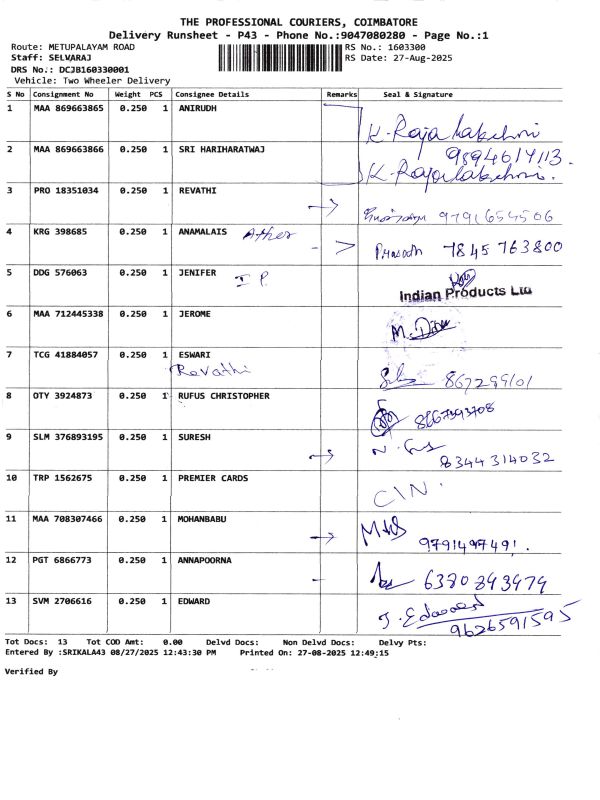 THE PROFESSIONAL COURIERS, COIMBATORE
Delivery Runsheet - P43 - Phone No.:9047080280 - Page No.:1
Route: METUPALAYAM ROAD RS No.: 1603300
Staff: SELVARAJ RS Date: 27-Aug-2025
DRS No.: DCJB160330001
Vehicle: Two Wheeler Delivery
S No Consignment No Weight PCS Consignee Details Remarks Seal & Signature
1 MAA 869663865 0.250 1 ANIRUDH K. Rajalakshmi
9894617113.
2 MAA 869663866 0.250 1 SRI HARIHARATWAJ K. Rajalakshmi.
3 PRO 18351034 0.250 1 REVATHI 9791654506
4 KRG 398685 0.250 1 ANAMALAIS Ather Prasath 7845763800
5 DDG 576063 0.250 1 JENIFER I P. Indian Products Ltd
6 MAA 712445338 0.250 1 JEROME
7 TCG 41884057 0.250 1 ESWARI 867299101
Revathi
8 OTY 3924873 0.250 1 RUFUS CHRISTOPHER
9 SLM 376893195 0.250 1 SURESH
8344314032
10 TRP 1562675 0.250 1 PREMIER CARDS CIN.
11 MAA 708307466 0.250 1 MOHANBABU
9791497491.
12 PGT 6866773 0.250 1 ANNAPOORNA 6380893979
13 SVM 2706616 0.250 1 EDWARD J. Edward
9626591595
Tot Docs: 13 Tot COD Amt: 0.00 Delvd Docs: Non Delvd Docs: Delvy Pts:
Entered By :SRIKALA43 08/27/2025 12:43:30 PM Printed On: 27-08-2025 12:49:15
Verified By